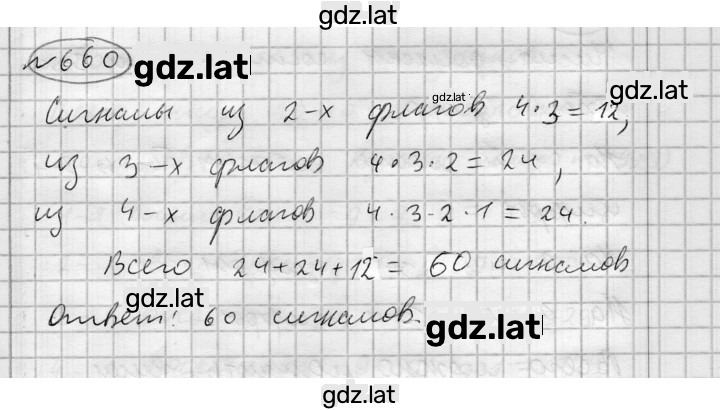 gdz.lat
№660 gdz.lat
gdz.lat
gdz.lat
Сигналы из 2-х флагов 4·3=12,
из 3-х флагов 4·3·2=24,
из 4-х флагов 4·3·2·1=24.
Всего 24+24+12=60 сигналов
gdz.lat
Ответ: 60 сигналов.
gdz.lat
gdz.lat